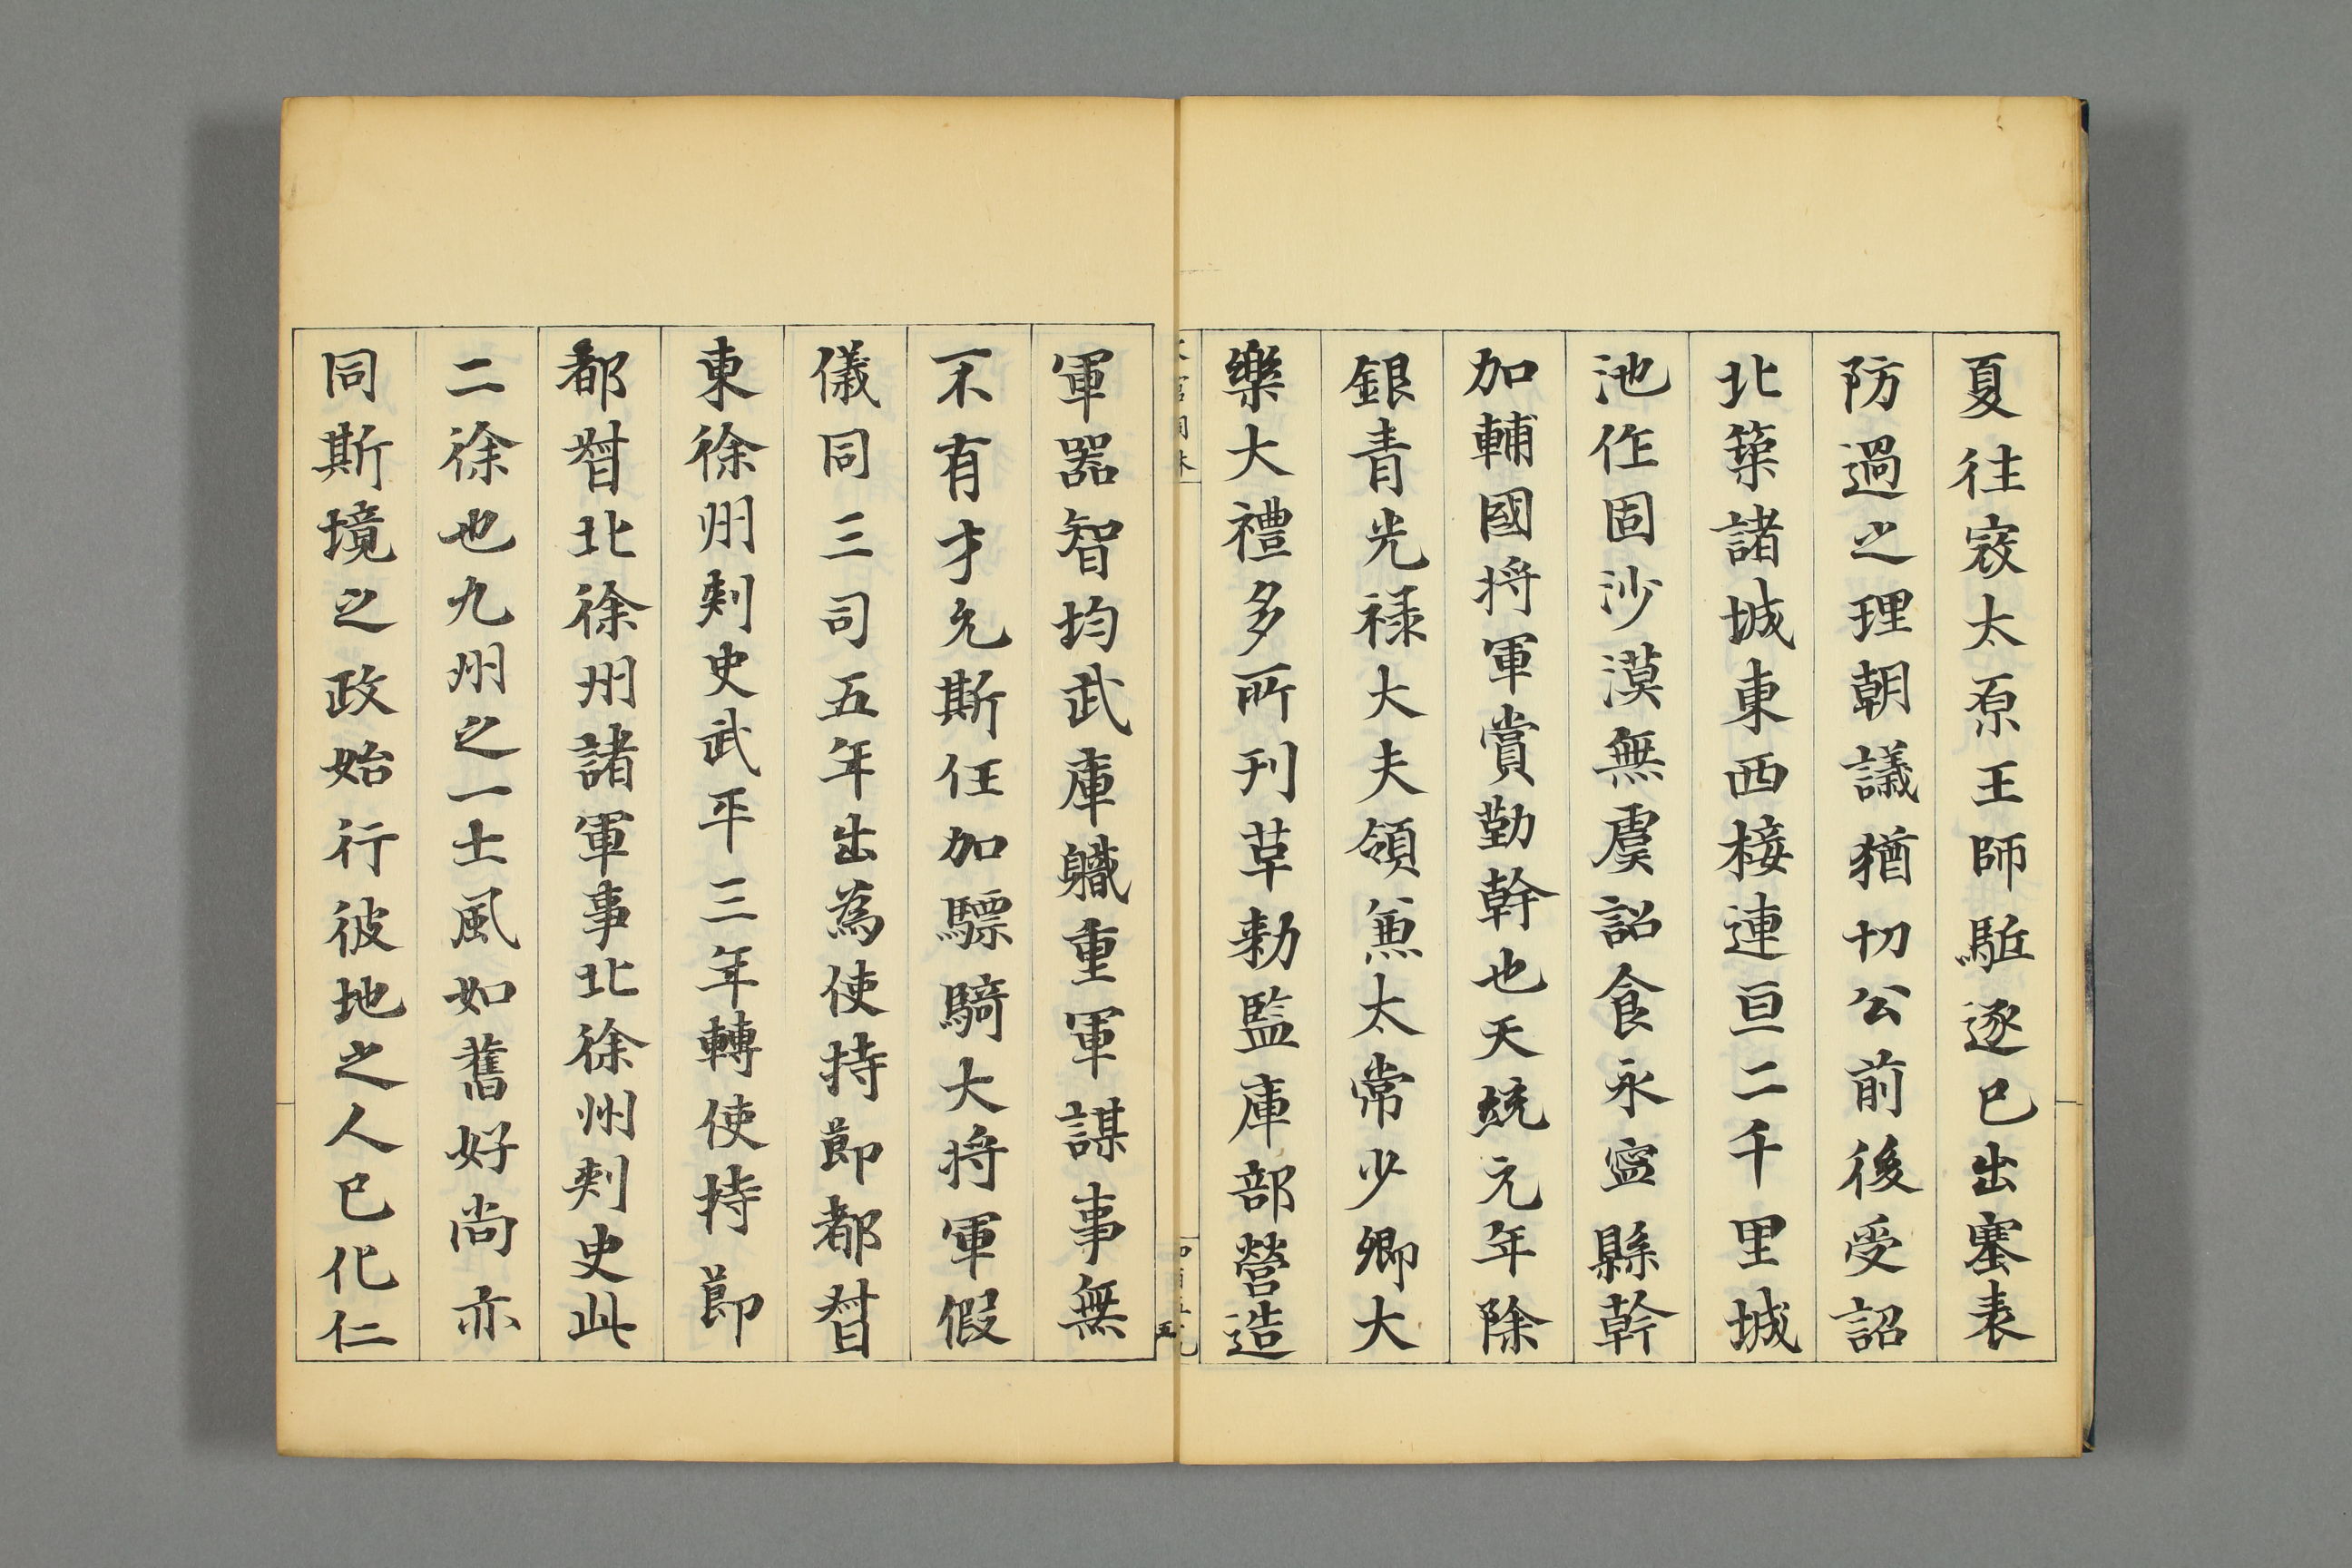 夏往寇太原王師駈逐已出塞表
防遏之理朝議猶切公前後受詔
北築諸城東西接連亘二千里城
池作固沙漠無虞詔食永寧縣幹
加輔國將軍賞勤幹也天統元年除
銀青光祿大夫領兼太常少卿大
樂大禮多所刊草勑監庫部營造
軍器智均武庫軄重軍謀事無
不有才允斯任加驃騎大將軍假
儀同三司五年出為使持節都督
東徐州刺史武平三年轉使持節
都督北徐州諸軍事北徐州刺史此
二徐也九州之一土風如舊好尚亦
同斯境之政始行彼地之人已化仁